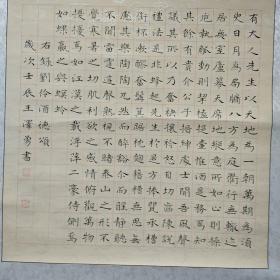 有大人先生以天地為一朝萬期為須
臾日月為扃牖八荒為庭衢行無轍迹
居無室廬幕天席地縱意所如止則操
卮執觚動則挈榼提壺惟酒是務焉知
其餘有貴介公子搢紳處士聞吾風聲
議其所以乃奮袂攘襟怒目切齒陳說
禮法是非蜂起先生於是方捧甖承槽
銜杯漱醪奮髯踑踞枕麴藉糟無思無
慮其樂陶陶兀然而醉豁爾而醒靜聽
不聞雷霆之聲熟視不睹泰山之形不
覺寒暑之切肌利欲之感情俯觀萬物
擾擾焉如江漢之載浮萍二豪侍側焉
如蜾蠃之與螟蛉
右錄劉伶酒德頌
歲次壬辰王澤勇書